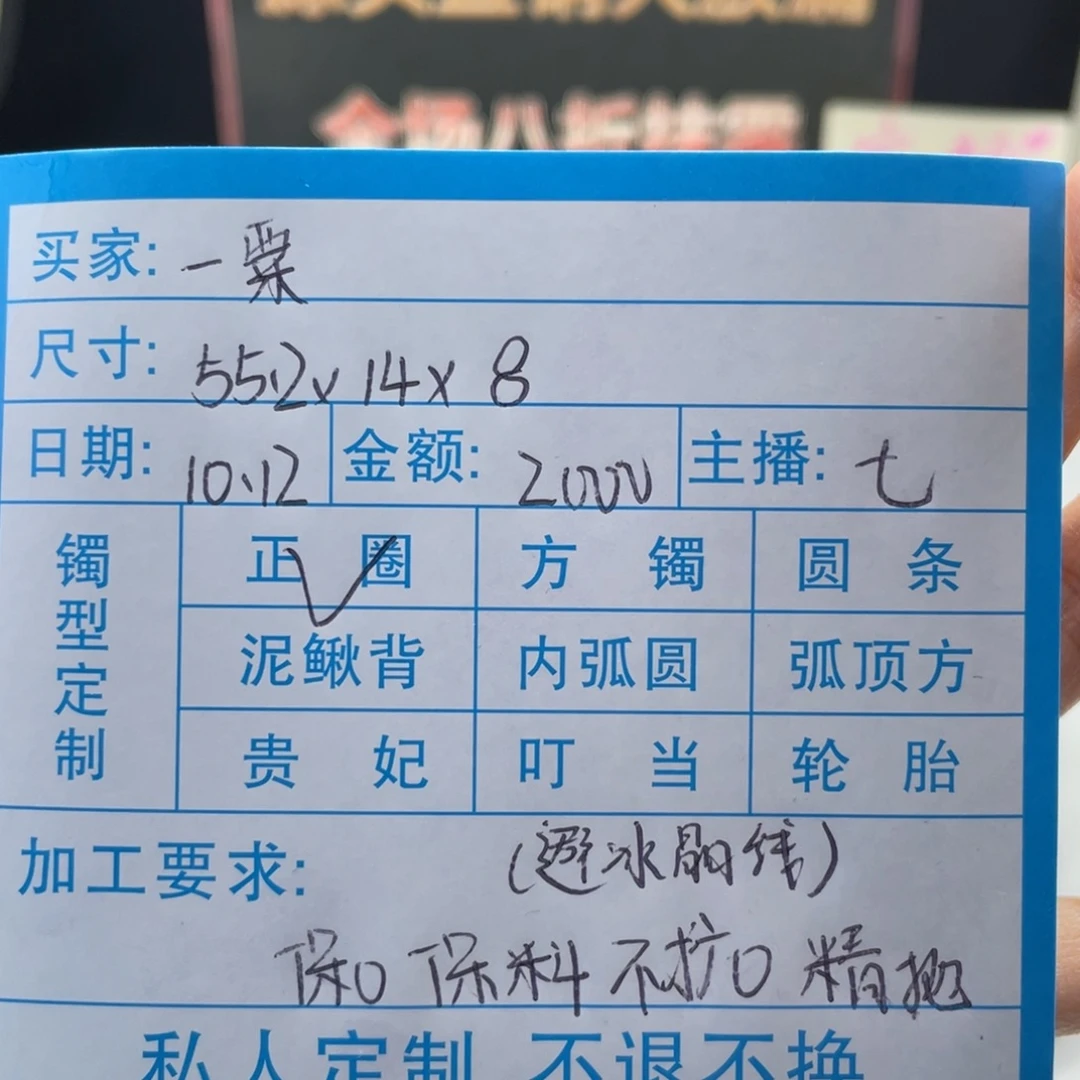 全场八折
买家: 一粟
尺寸: 55.2x14x8
日期: 10.12 金额: 2000 主播: 七
镯型定制
正圈 方镯 圆条
泥鳅背 内弧圆 弧顶方
贵妃 叮当 轮胎
加工要求: (避冰晶绵)
保口 保料 不扩口 精抛
私人定制 不退不换